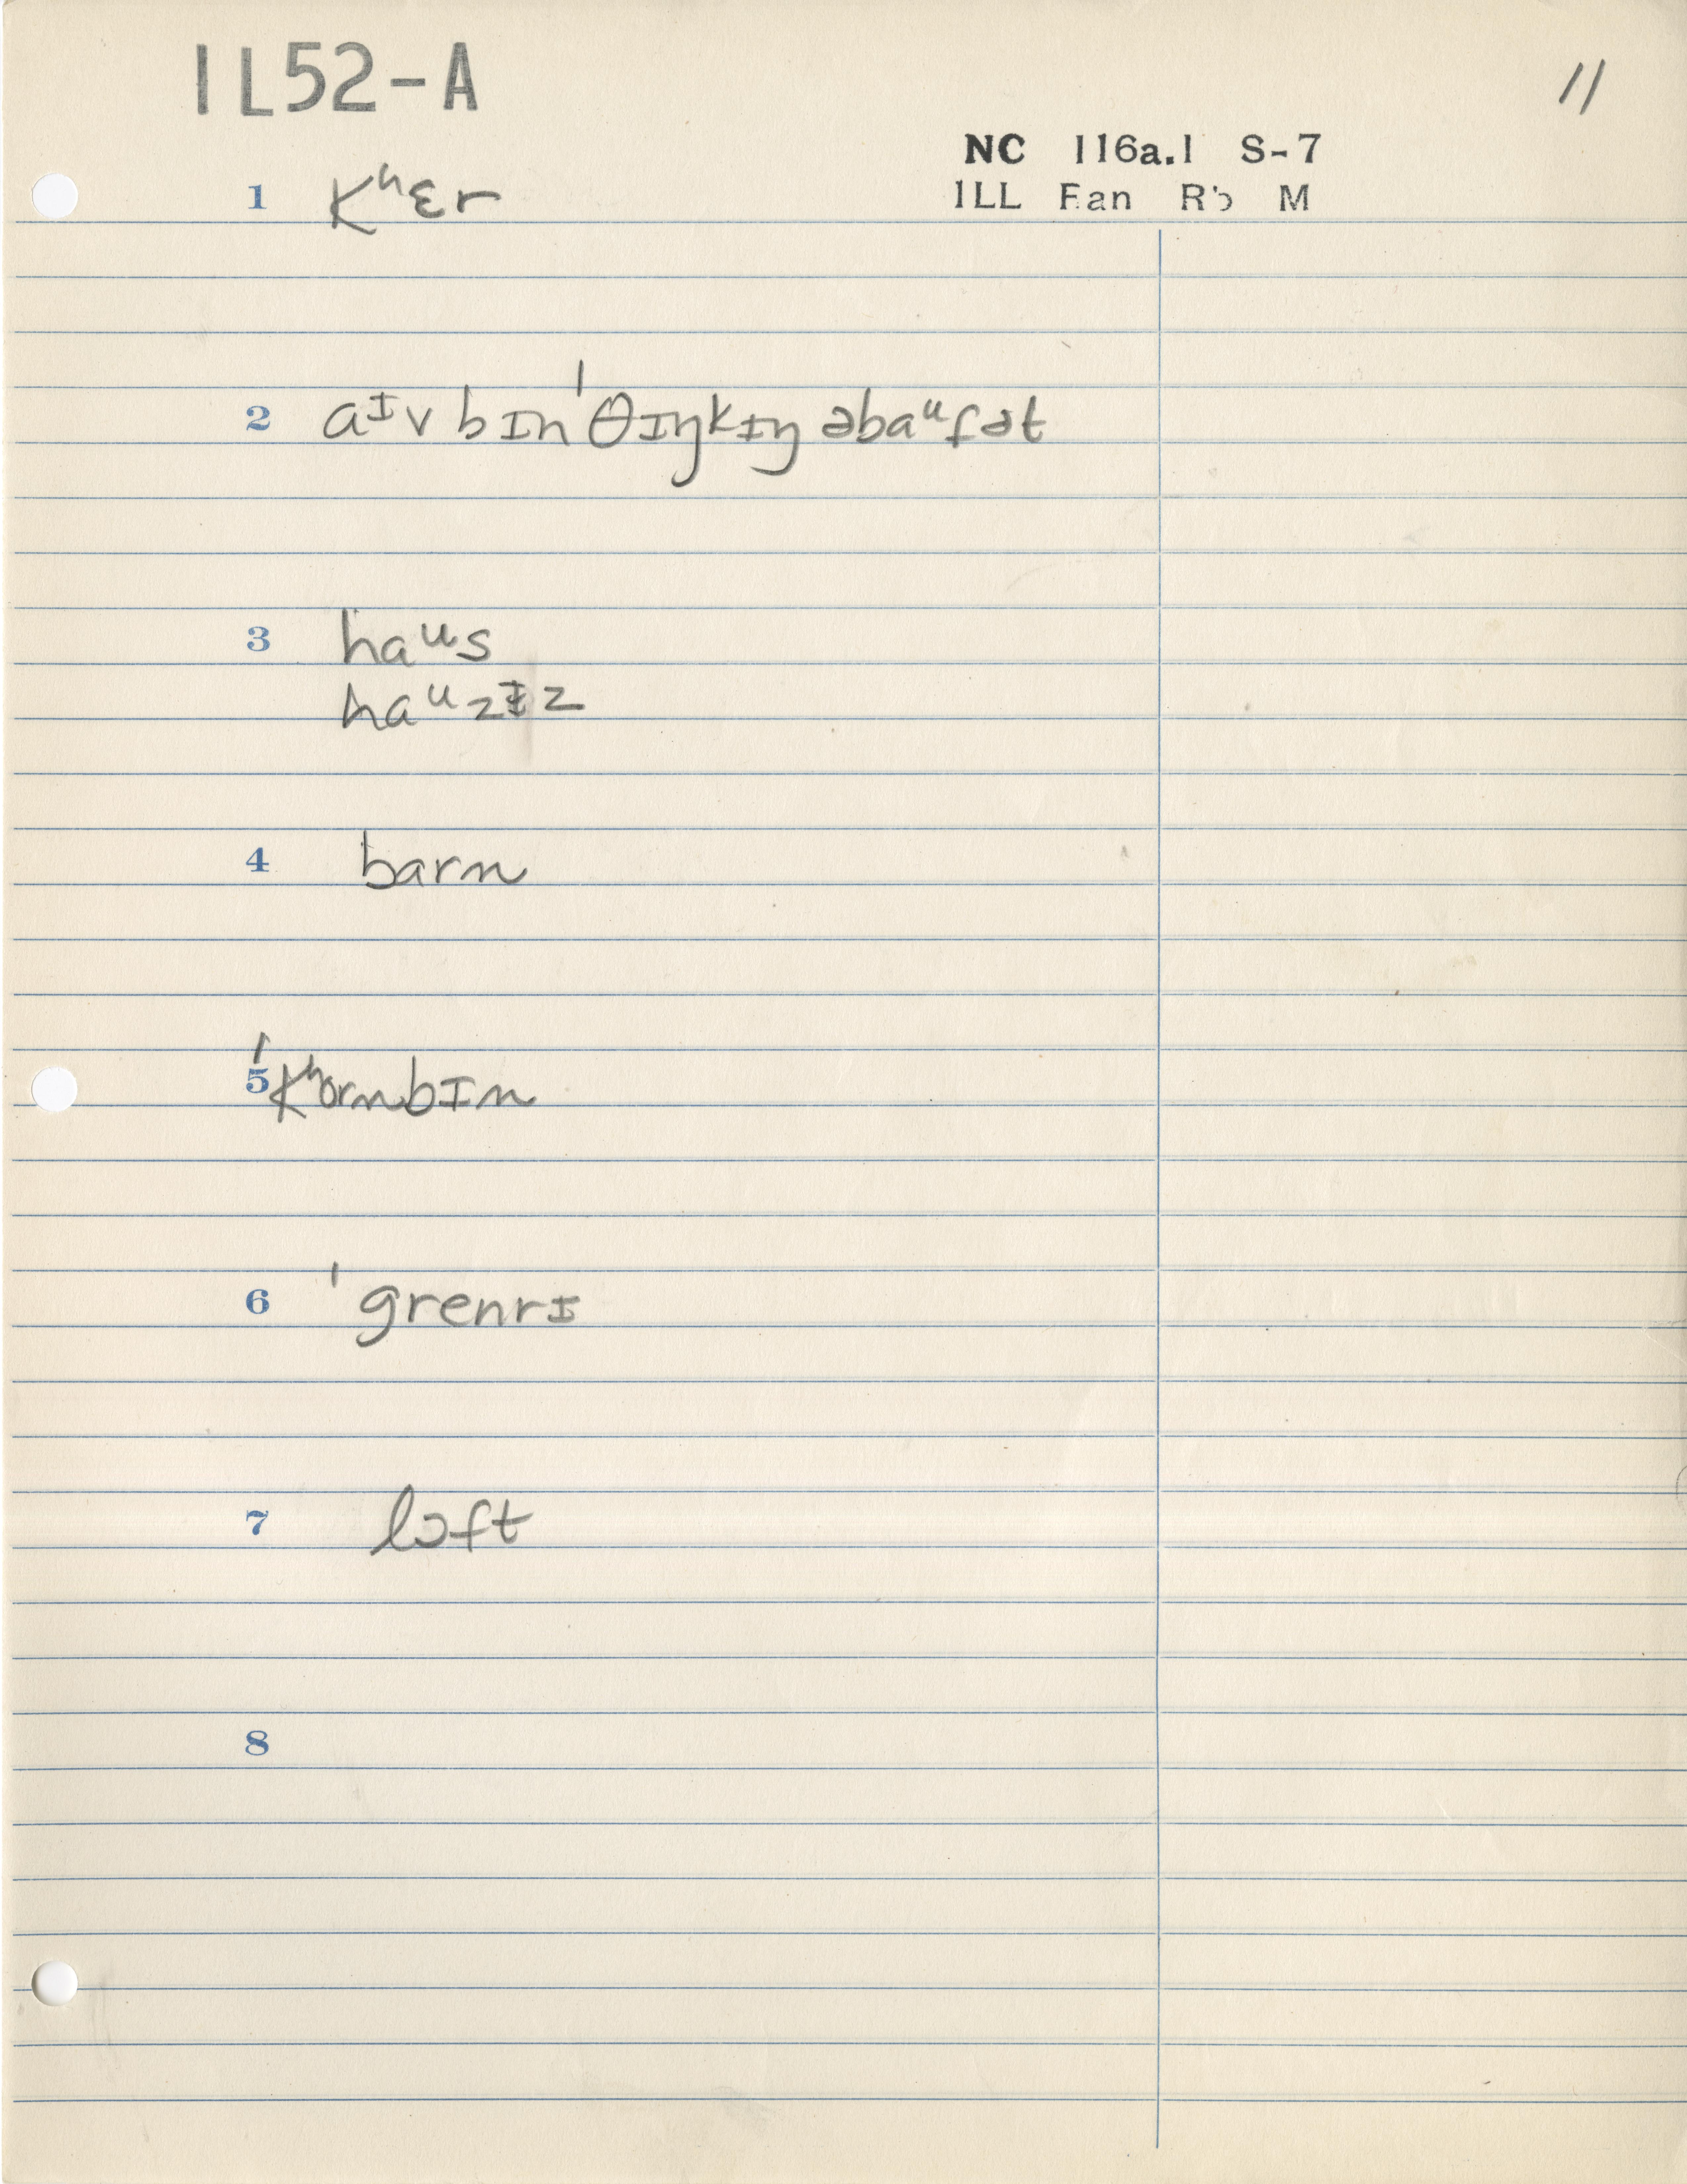 IL52-A
11
NC 116a.1 S-7
ILL Ran Rb M
1 kʰɛr
2 aᶦv bɪn ˈθɪŋkɪŋ əbaᵘfət
3 haᵘs
haᵘzɪz
4 barn
5 ˈkʰɔrnbɪn
6 ˈgrenrɪ
7 lɔft
8